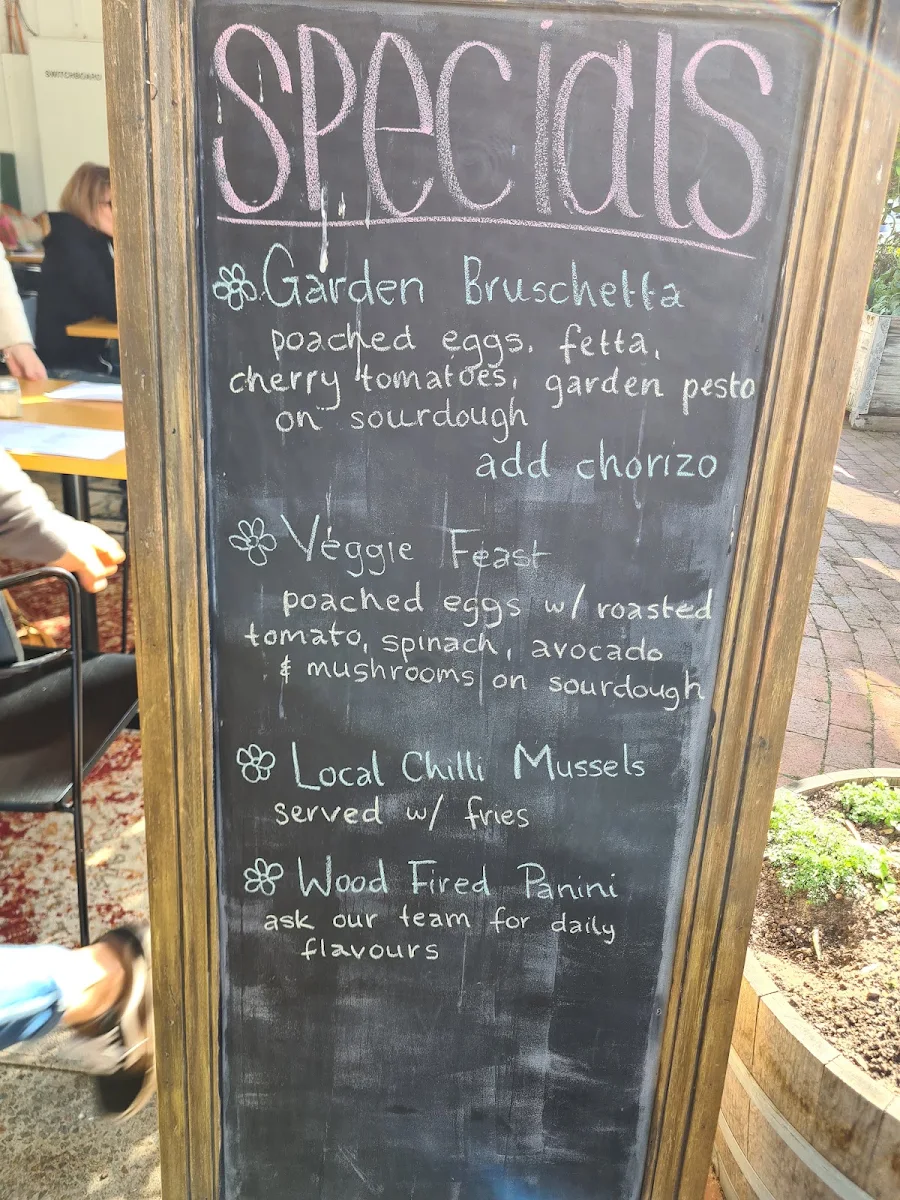 SWITCHBOARD
specials
Garden Bruschetta
poached eggs, fetta,
cherry tomatoes, garden pesto
on sourdough
add chorizo
Veggie Feast
poached eggs w/ roasted
tomato, spinach, avocado
& mushrooms on sourdough
Local Chilli Mussels
served w/ fries
Wood Fired Panini
ask our team for daily
flavours